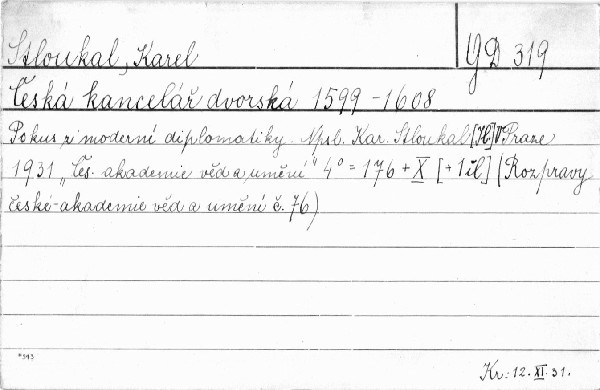 Stloukal, Karel
YD 319
Česká kancelář dvorská 1599-1608
Pokus z moderní diplomatiky. Npsl. Kar. Stloukal [H] V Praze
1931 „Čes. akademie věd a umění“ 4° = 176 + X [+ 1 il] (Rozpravy
české akademie věd a umění č. 76)
Kr: 12. XI. 31.